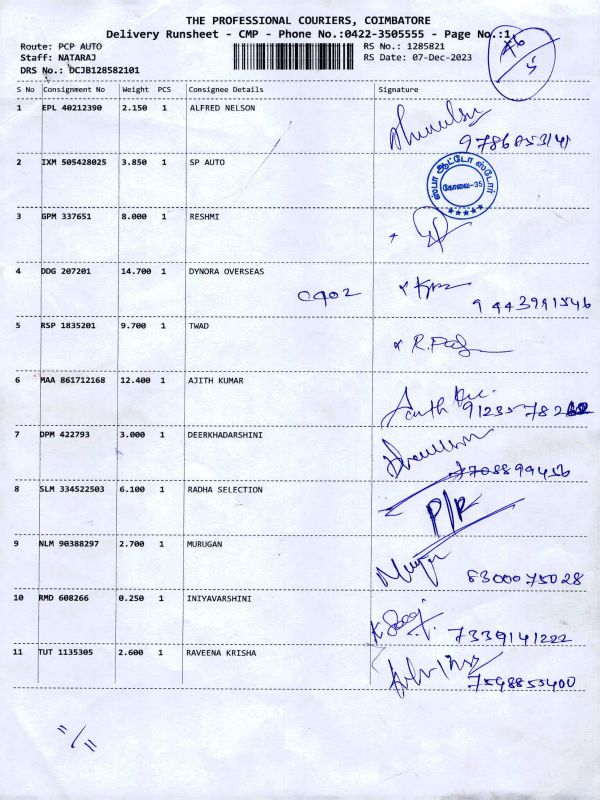 THE PROFESSIONAL COURIERS, COIMBATORE
Delivery Runsheet - CMP - Phone No.:0422-3505555 - Page No.:1
Route: PCP AUTO RS No.: 1285821
Staff: NATARAJ RS Date: 07-Dec-2023
DRS No.: DCJB128582101
S No Consignment No Weight PCS Consignee Details Signature
1 EPL 40212390 2.150 1 ALFRED NELSON
2 IXM 505428025 3.850 1 SP AUTO
ஸ்பா ஆட்டோ ஸ்டோர்
கோவை-35
3 GPM 337651 8.000 1 RESHMI
4 DDG 207201 14.700 1 DYNORA OVERSEAS
9443991546
5 RSP 1835201 9.700 1 TWAD
6 MAA 861712168 12.400 1 AJITH KUMAR
7 DPM 422793 3.000 1 DEERKHADARSHINI
7708899456
8 SLM 334522503 6.100 1 RADHA SELECTION
P/R
9 NLM 90388297 2.700 1 MURUGAN
8300075028
10 RMD 608266 0.250 1 INIYAVARSHINI
7339141222
11 TUT 1135305 2.600 1 RAVEENA KRISHA
7598855400